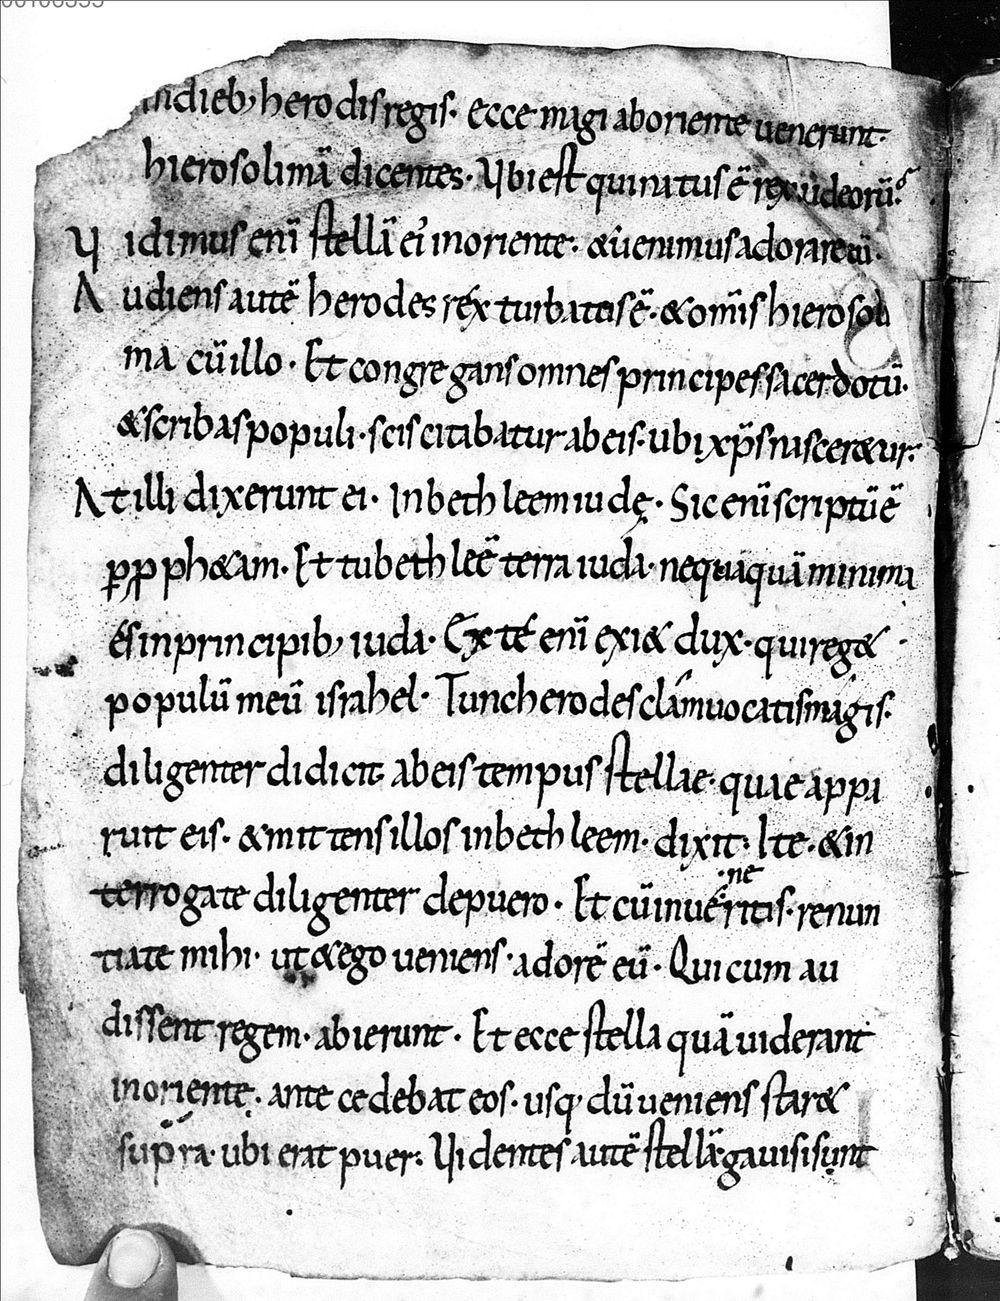 indieb; herodis regis· ecce magi aboriente uenerunt·
hierosolimā dicentes· Ubi est qui natus ē rex iudeorū?
Uidimus enī stellā ei' inoriente· & uenimus adorare eū·
Audiens autē herodes réx turbatus ē· & om̄is hierosoli
ma cū illo· Et congregans omnes principes sacerdotū·
& scribas populi· sciscitabatur abeis· ubi xp̄s nascer&ur·
At illi dixerunt ei· Inbethleem iudę· Sic enī scriptū ē
ꝑ ꝓph&am· Et tu bethleē terra iuda· nequaquā minima
és inprincipib; iuda· Ex té enī exi& dux· qui reg&
populū meū israhel· Tunc herodes clám uocatis magis·
diligenter didicit abeis tempus stellae· quae appa
ruit eis· & mittens illos inbethleem· dixit· Ite· & in
·ne
terrogate diligenter depuero· Et cū inuéritis· renun
tiate mihi· ut & ego ueniens· adorē eū· Qui cum au
dissent regem· abierunt· Et ecce stella quā uiderant
inoriente· antecedebat eos· usq; dū ueniens star&
supra· ubi erat puer· Uidentes autē stellā gauisi sunt